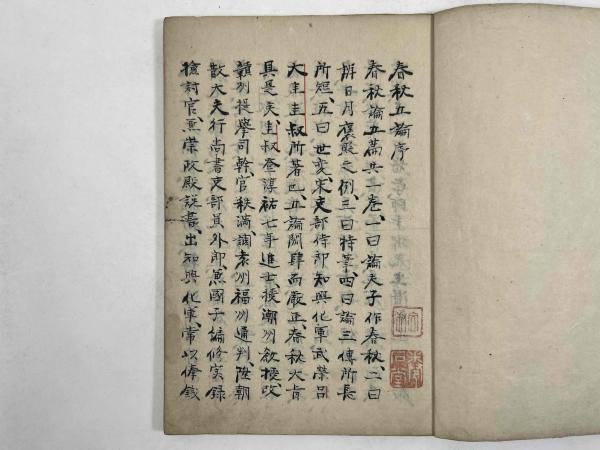 春秋五論序
春秋論五篇共一卷一曰論夫子作春秋二曰
辨日月褒貶之例三曰特筆四曰論三傳所長
所短五曰世變宋吏部侍郎知興化軍武榮呂
大圭圭叔所著也五論閎肆而嚴正春秋大旨
具是矣圭叔登淳祐七年進士授潮州教授改
贛州提擧司幹官秩滿調袁州福州通判陞朝
散大夫行尚書吏部員外郎兼國子編修實錄
檢討官兼崇政殿說書出知興化軍常以俸錢